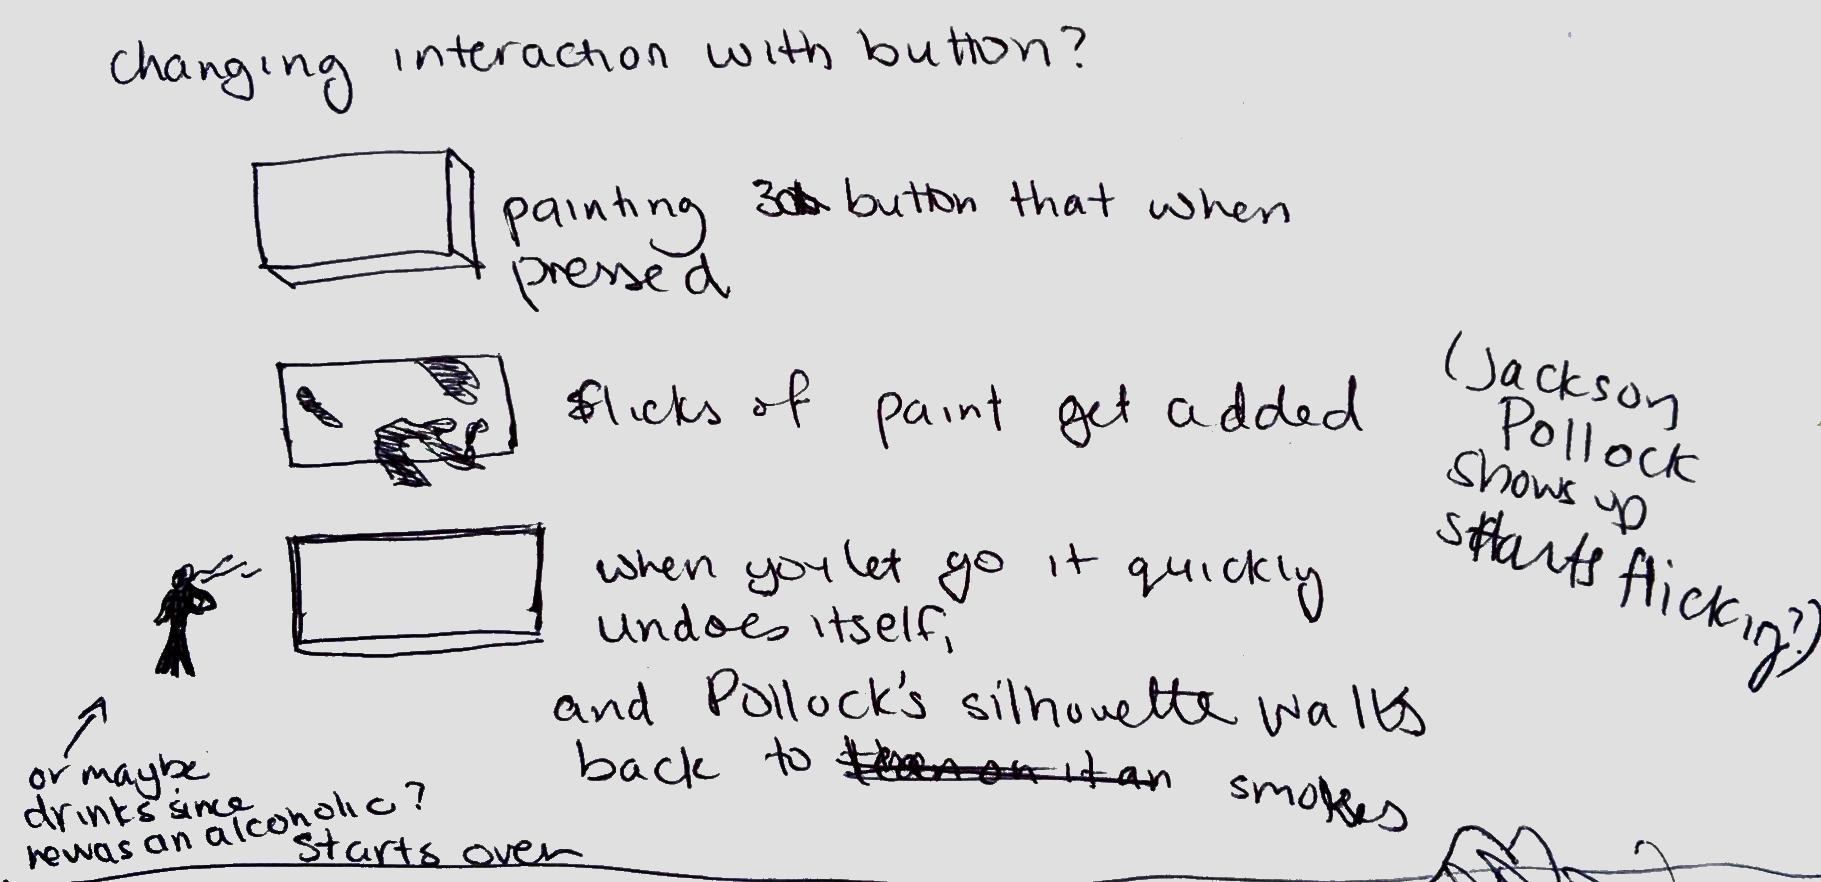 changing interaction with button?
painting button that when
pressed
flicks of paint get added
(Jackson
Pollock
shows up
starts flicking?)
when you let go it quickly
undoes itself,
and Pollock's silhouette walks
back to smokes
or maybe
drinks since
he was an alcoholic?
starts over